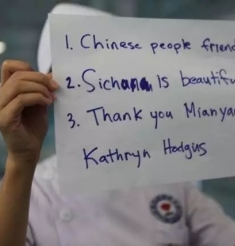 1. Chinese people friend
2. Sichuan Is beautifu
3. Thank you Mianya
Kathryn Hodgus